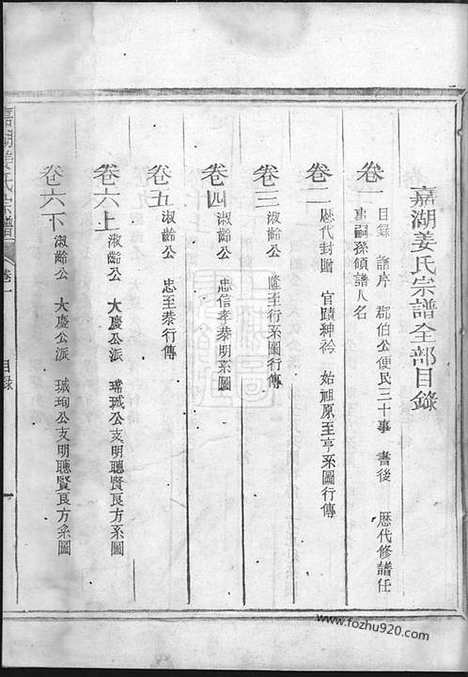 嘉湖姜氏宗譜全部目錄
卷一 目錄 譜序 郡伯公便民三十事 書後 歷代修譜任
事嗣孫領譜人名
卷二 歷代封贈 官蹟紳衿 始祖原至亨系圖行傳
卷三 淑齡公 隆至行系圖行傳
卷四 淑齡公 忠信孝恭明系圖
卷五 淑齡公 忠至恭行傳
卷六上 淑齡公 大慶公派 瑞珹公支明聰賢良方系圖
卷六下 淑齡公 大慶公派 珹珣公支明聰賢良方系圖
嘉湖姜氏宗譜 卷一 目錄 一
www.fozhu920.com